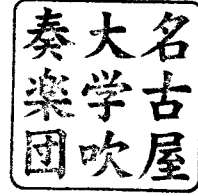 名古屋
大学吹
奏楽団